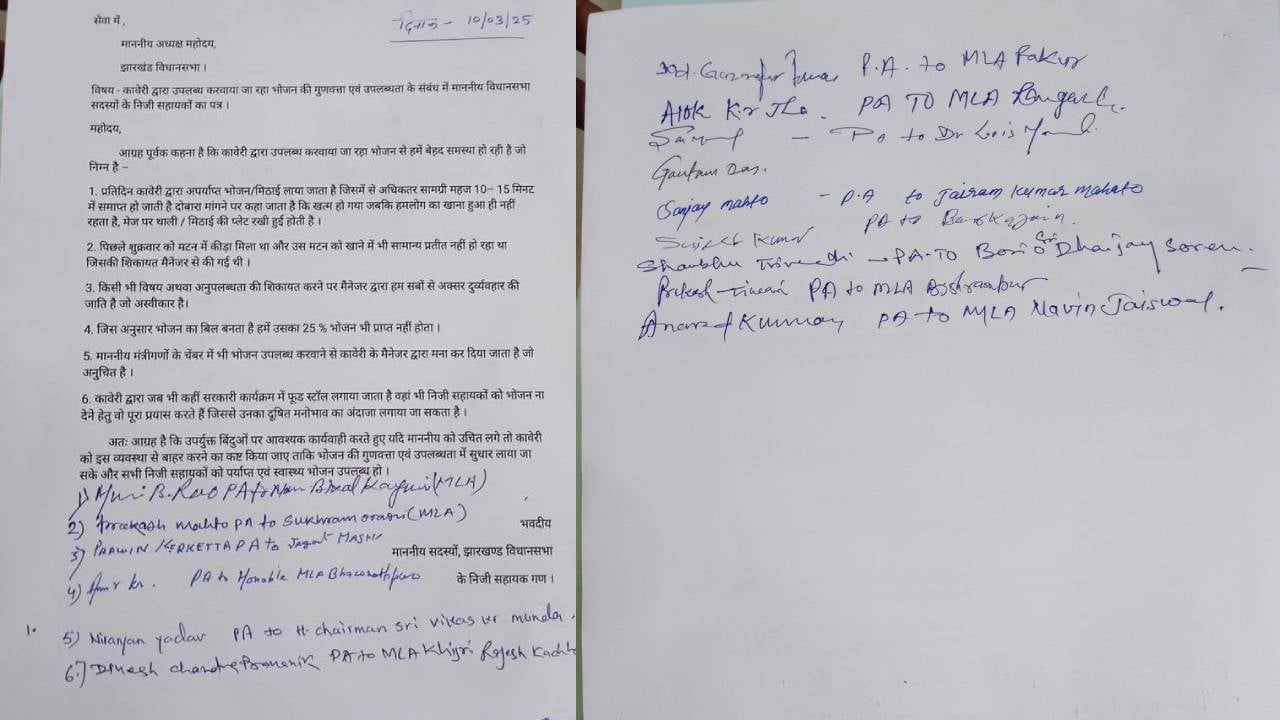 सेवा में ,
दिनांक - 10/03/25
माननीय अध्यक्ष महोदय,
झारखंड विधानसभा ।
विषय - कावेरी द्वारा उपलब्ध करवाया जा रहा भोजन की गुणवत्ता एवं उपलब्धता के संबंध में माननीय विधानसभा
सदस्यों के निजी सहायकों का पत्र ।
महोदय,
आग्रह पूर्वक कहना है कि कावेरी द्वारा उपलब्ध करवाया जा रहा भोजन से हमें बेहद समस्या हो रही है जो
निम्न है –
1. प्रतिदिन कावेरी द्वारा अपर्याप्त भोजन/मिठाई लाया जाता है जिसमें से अधिकतर सामग्री महज 10– 15 मिनट
में समाप्त हो जाती है दोबारा मांगने पर कहा जाता है कि खत्म हो गया जबकि हमलोग का खाना हुआ ही नहीं
रहता है, मेज पर थाली / मिठाई की प्लेट रखी हुई होती है ।
2. पिछले शुक्रवार को मटन में कीड़ा मिला था और उस मटन को खाने में भी सामान्य प्रतीत नहीं हो रहा था
जिसकी शिकायत मैनेजर से की गई थी ।
3. किसी भी विषय अथवा अनुपलब्धता की शिकायत करने पर मैनेजर द्वारा हम सबों से अक्सर दुर्व्यवहार की
जाति है जो अस्वीकार है।
4. जिस अनुसार भोजन का बिल बनता है हमें उसका 25 % भोजन भी प्राप्त नहीं होता ।
5. माननीय मंत्रीगणों के चेंबर में भी भोजन उपलब्ध करवाने से कावेरी के मैनेजर द्वारा मना कर दिया जाता है जो
अनुचित है ।
6. कावेरी द्वारा जब भी कहीं सरकारी कार्यक्रम में फूड स्टॉल लगाया जाता है वहां भी निजी सहायकों को भोजन ना
देने हेतु वो पूरा प्रयास करते हैं जिससे उनका दूषित मनोभाव का अंदाजा लगाया जा सकता है ।
अतः आग्रह है कि उपर्युक्त बिंदुओं पर आवश्यक कार्यवाही करते हुए यदि माननीय को उचित लगे तो कावेरी
को इस व्यवस्था से बाहर करने का कष्ट किया जाए ताकि भोजन की गुणवत्ता एवं उपलब्धता में सुधार लाया जा
सके और सभी निजी सहायकों को पर्याप्त एवं स्वास्थ्य भोजन उपलब्ध हो ।
1) B. Rao PA to (MLA)
2) Prakash Mahto PA to Sukhram Oraon (MLA)
भवदीय
3) PRAWIN KERKETTA PA to Jagat MASHI
माननीय सदस्यों, झारखण्ड विधानसभा
4) kr. PA to Honable MLA Bhawanathpur
के निजी सहायक गण ।
1.
5) Niranjan yadav PA to H. chairman sri vikas kr munda.
6.) Dinesh chandra Pramanik PA to MLA Khijri Rajesh Kachh
Md. P.A. to MLA Pakur
Alok Kr Jha. PA TO MLA Ramgarh.
– PA to Dr Lois
Gautam Das.
Sanjay mahto – P.A to Jairam Kumar mahato
Kumar PA to
Shambhu Trivedi – PA-TO Borio Sri Dhanjay Soren.
Prakash Tiwari PA to MLA Bishrampur
Anand Kumar PA to MLA Navin Jaiswal.